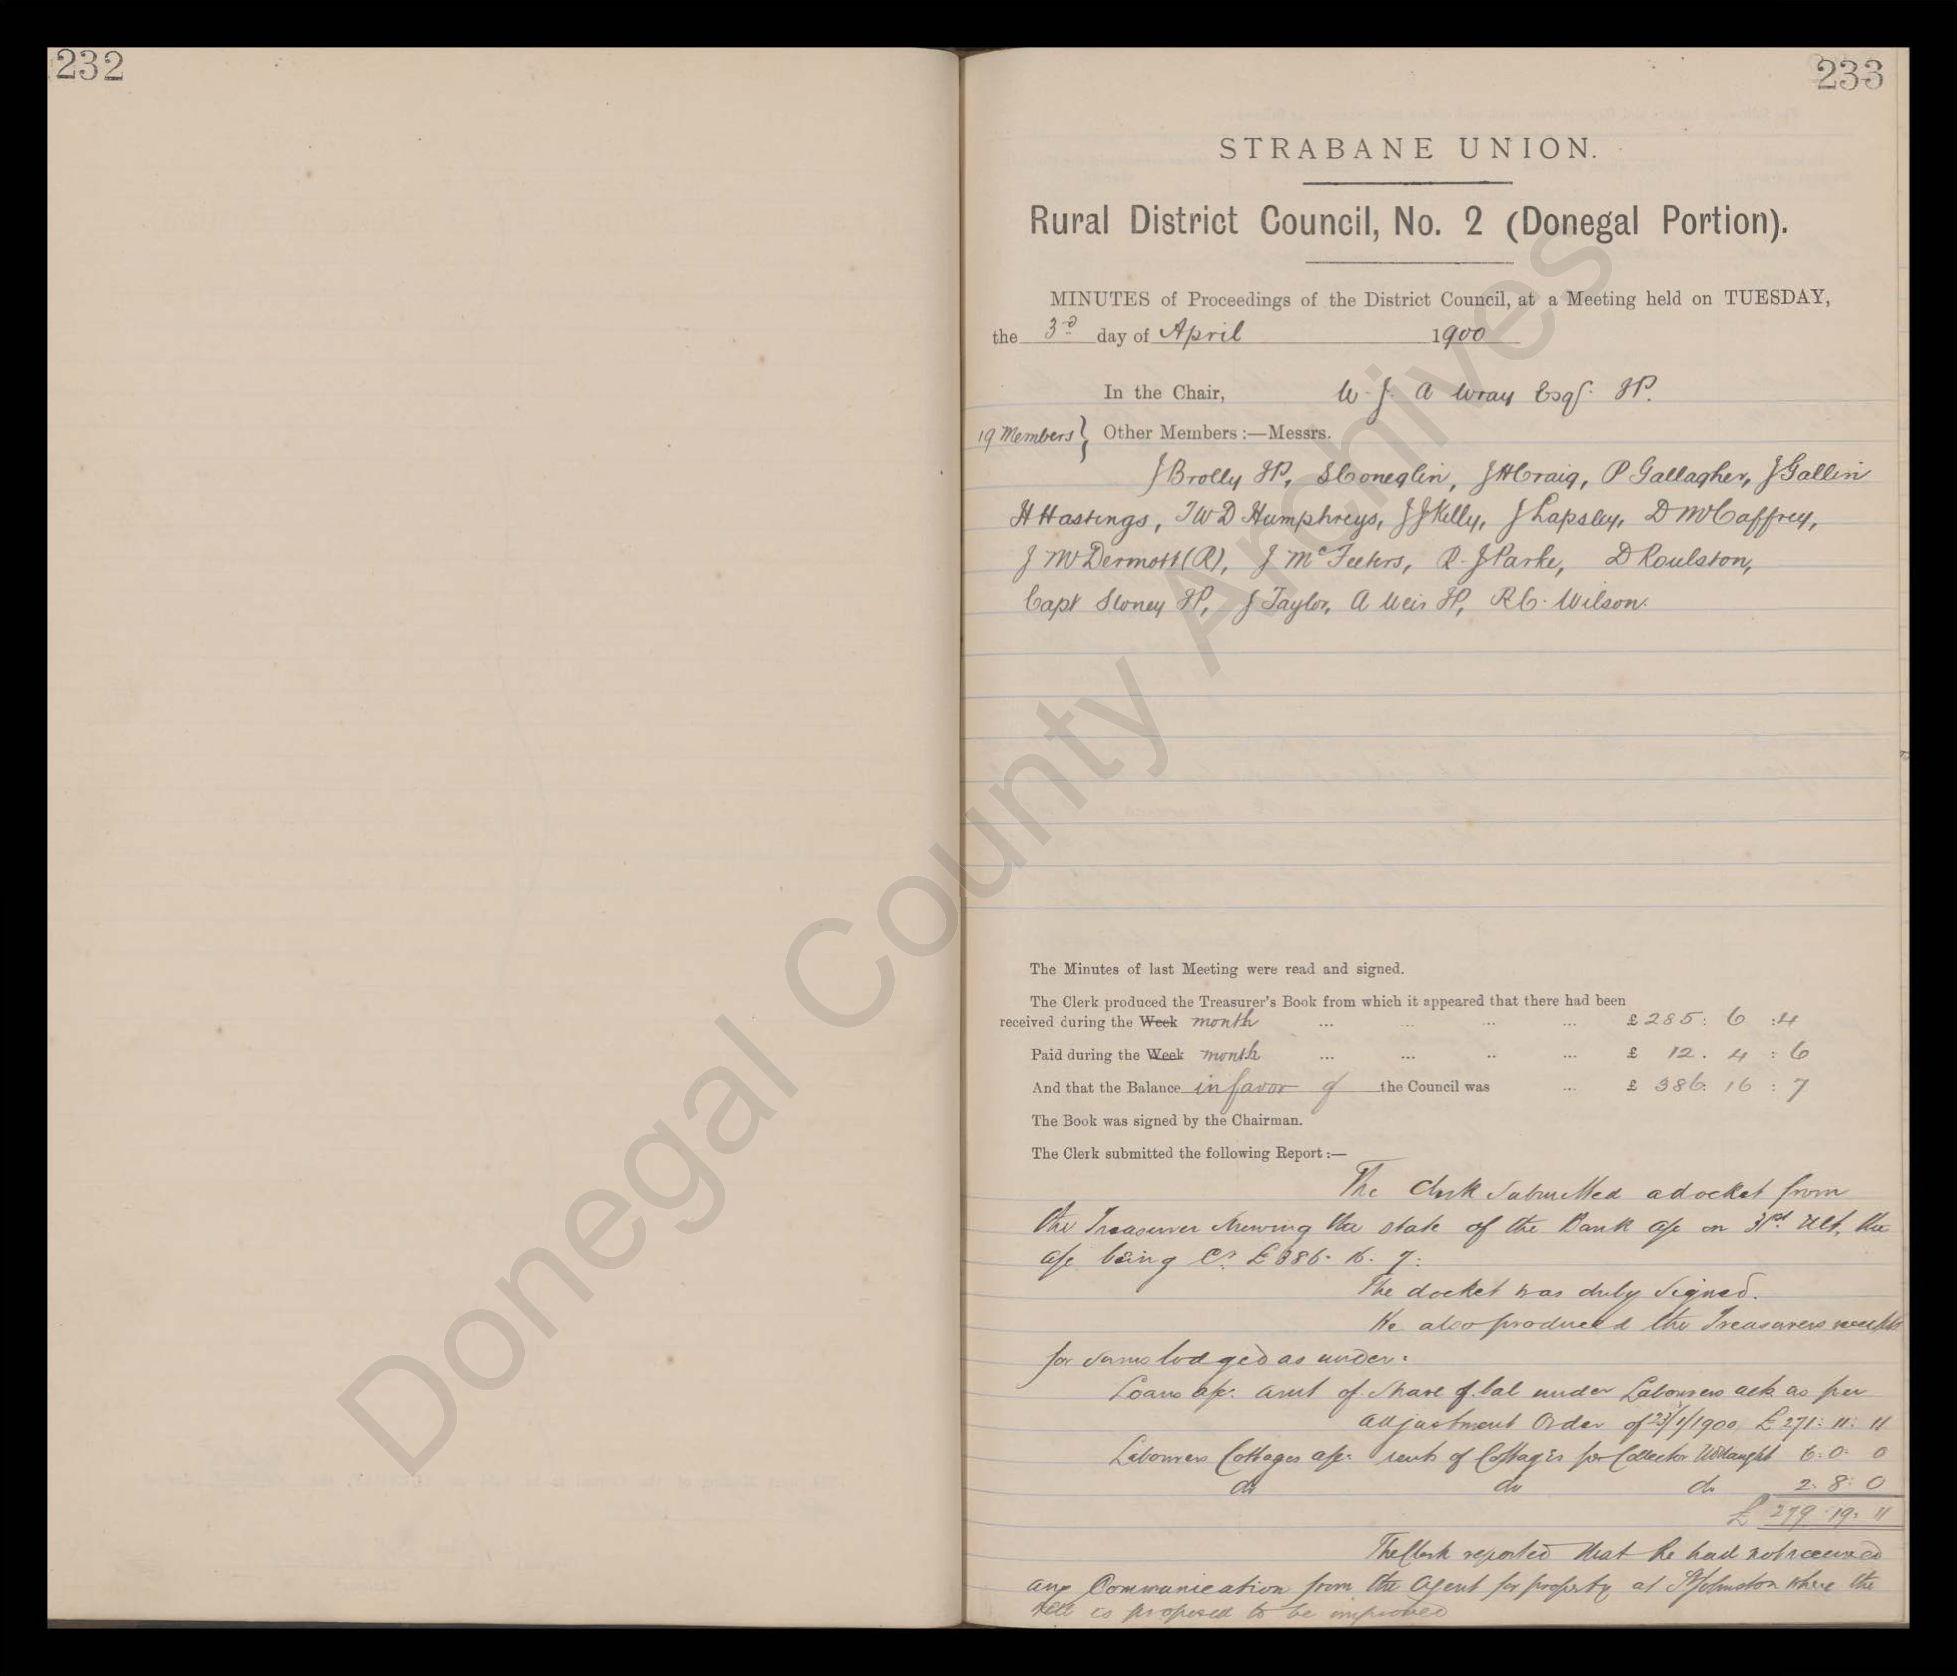 232
233
STRABANE UNION.
Rural District Council, No. 2 (Donegal Portion).
MINUTES of Proceedings of the District Council, at a Meeting held on TUESDAY,
the 3rd day of April 1900
In the Chair, W. J. A Wray Esqr. JP.
19 Members} Other Members:—Messrs.
J Brolly JP, S Coneglin, J H Craig, P Gallagher, J Gallen
H Hastings, T W D Humphreys, J J Kelly, J Lapsley, D McCaffrey,
J McDermott (R), J McFeeters, R. J Parke, D Roulston,
Capt Stoney JP, J Taylor, A Weir JP, R C. Wilson.
The Minutes of last Meeting were read and signed.
The Clerk produced the Treasurer's Book from which it appeared that there had been
received during the Week month ... ... ... ... £ 285 : 6 : 4
Paid during the Week month ... ... ... ... £ 12 . 4 : 6
And that the Balance in favor of the Council was ... £ 386 : 16 : 7
The Book was signed by the Chairman.
The Clerk submitted the following Report:—
The Clerk submitted a docket from
the Treasurer shewing the state of the Bank a/c on 31st Ult, the
a/c being Cr £386. 16. 7.
The docket was duly signed.
He also produced the Treasurers receipts
for sums lodged as under:
Loans a/c: amt of share of bal under Labourers acts as per
adjustment Order of 23/1/1900 £ 271 : 11 : 11
Labourers Cottages a/c: rents of Cottages per Collector 6 : 0 : 0
do do do 2 : 8 : 0
£ 279 : 19 : 11
The Clerk reported that he had not received
any Communication from the Agent for property at St Johnston where the
is proposed to be improved
Donegal County Archives